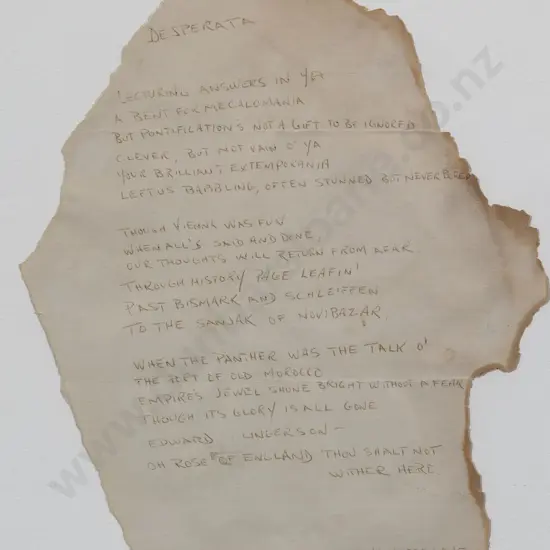 DESPERATA
LECTURING ANSWERS IN YA
A BENT FOR MEGALOMANIA
BUT PONTIFICATIONS NOT A GIFT TO BE IGNORED
CLEVER, BUT NOT VAIN O' YA
YOUR BRILLIANT EXTEMPORANIA
LEFT US BABBLING, OFTEN STUNNED BUT NEVER BORED
THOUGH VIENNA WAS FUN
WHEN ALL'S SAID AND DONE,
OUR THOUGHTS WILL RETURN FROM AFAR
THROUGH HISTORY PAGE LEAFIN'
PAST BISMARK AND SCHLEIFFEN
TO THE SANJAK OF NOVIBAZAR
WHEN THE PANTHER WAS THE TALK O'
THE PORT OF OLD MOROCCO
EMPIRES JEWEL SHONE BRIGHT WITHOUT A FEAR
THOUGH ITS GLORY IS ALL GONE
EDWARD UNGERSON -
OH ROSE OF ENGLAND THOU SHALT NOT
WITHER HERE